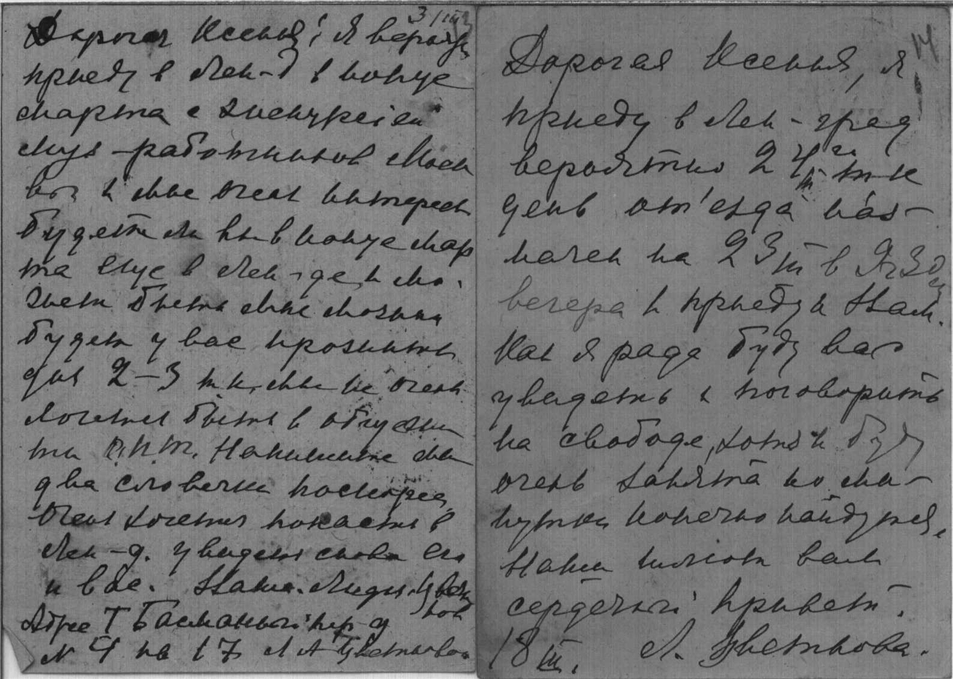 3/III
Дорогая Ксенья! Я вероятно
приеду в Лен-д в конце
марта с экскурсией
муз-работников Моск
вы и мне очень интересн
будете ли вы в конце мар
та еще в Лен-де и мо-
жет быть мне можно
будет у вас прожить
дня 2-3 т.к. мне не очень
хочется быть в общежи
тии Напишите мне
два словечка поскорее,
очень хочется попасть в
Лен-д. увидеть снова его
и вас. Ваша Лидия Цвет
кова
Адрес Т Басманный пер. д
№ 4 кв 17 Л А Цветковой
14
Дорогая Ксенья, я
приеду в Лен-град
вероятно 24го т к
III
день от'езда наз-
начен на 23 III в
вечера и приеду к вам.
Как я рада буду вас
увидеть и поговорить
на свободе, хотя и буду
очень занята но ми-
нутки конечно найдутся.
Наши шлют вам
сердечный привет.
18 III. Л. Цветкова.